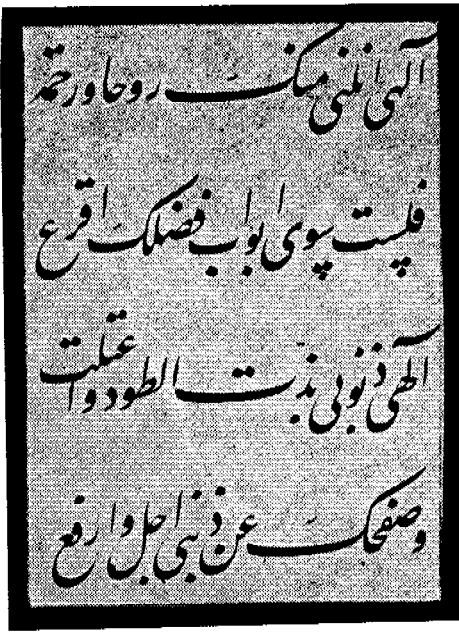 الهی انلنی منک روحا ورحمة
فلست سوی ابواب فضلک اقرع
الهی ذنوبی بذت الطود واعتلت
وصفحک عن ذنبی اجل وارفع